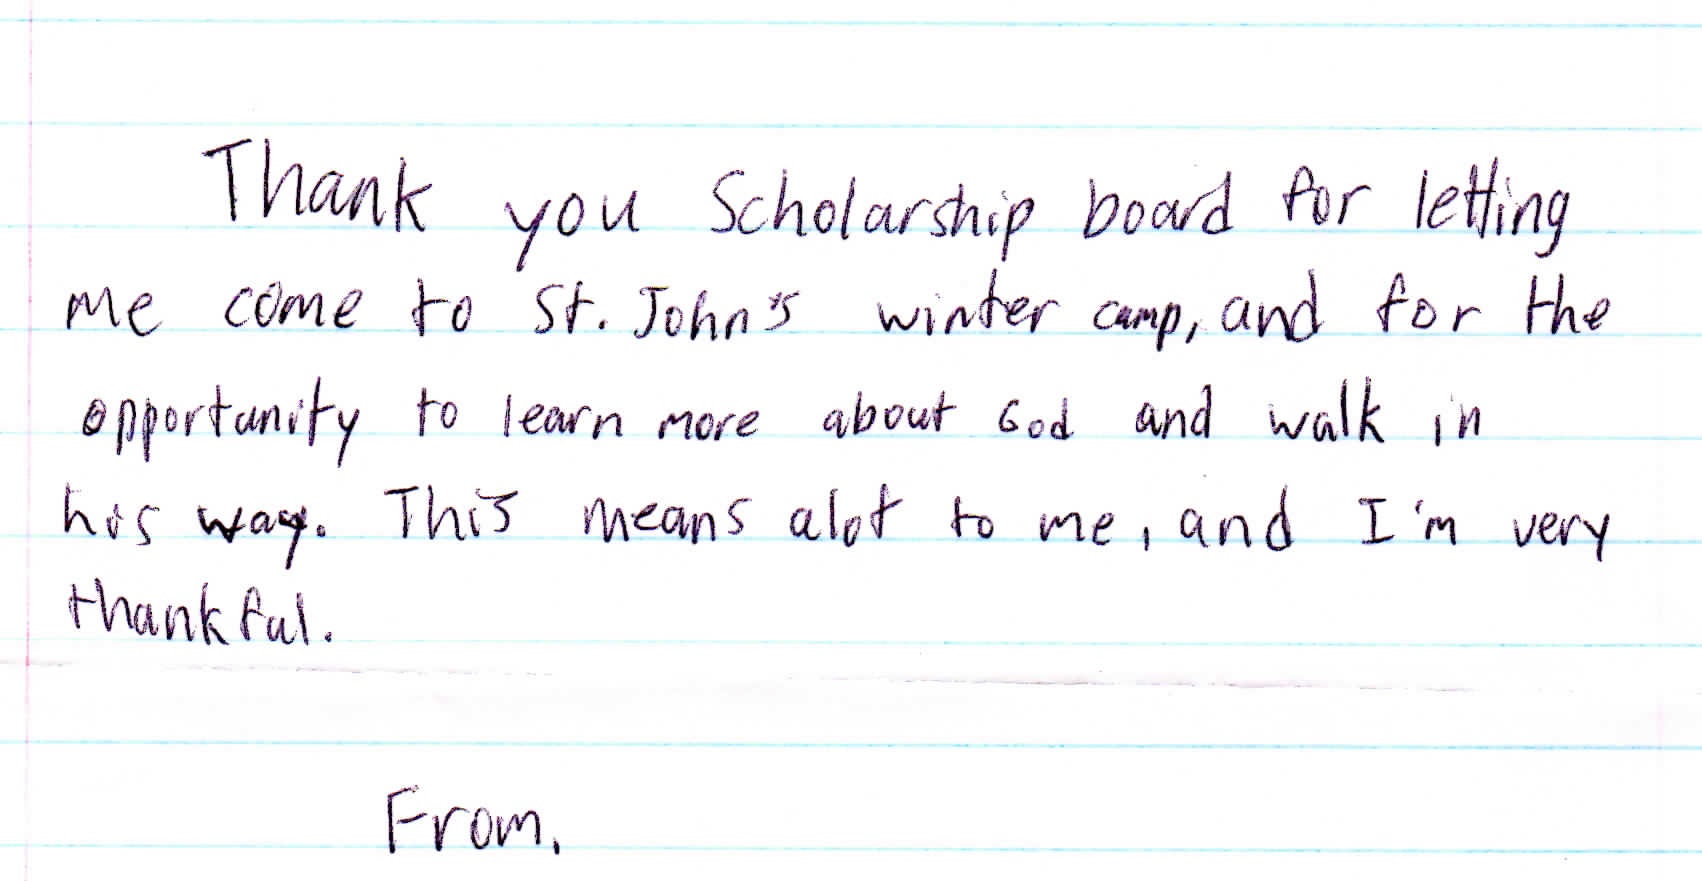 Thank you Scholarship board for letting
me come to St. John's winter camp, and for the
opportunity to learn more about God and walk in
his way. This means alot to me, and I'm very
thankful.
From,